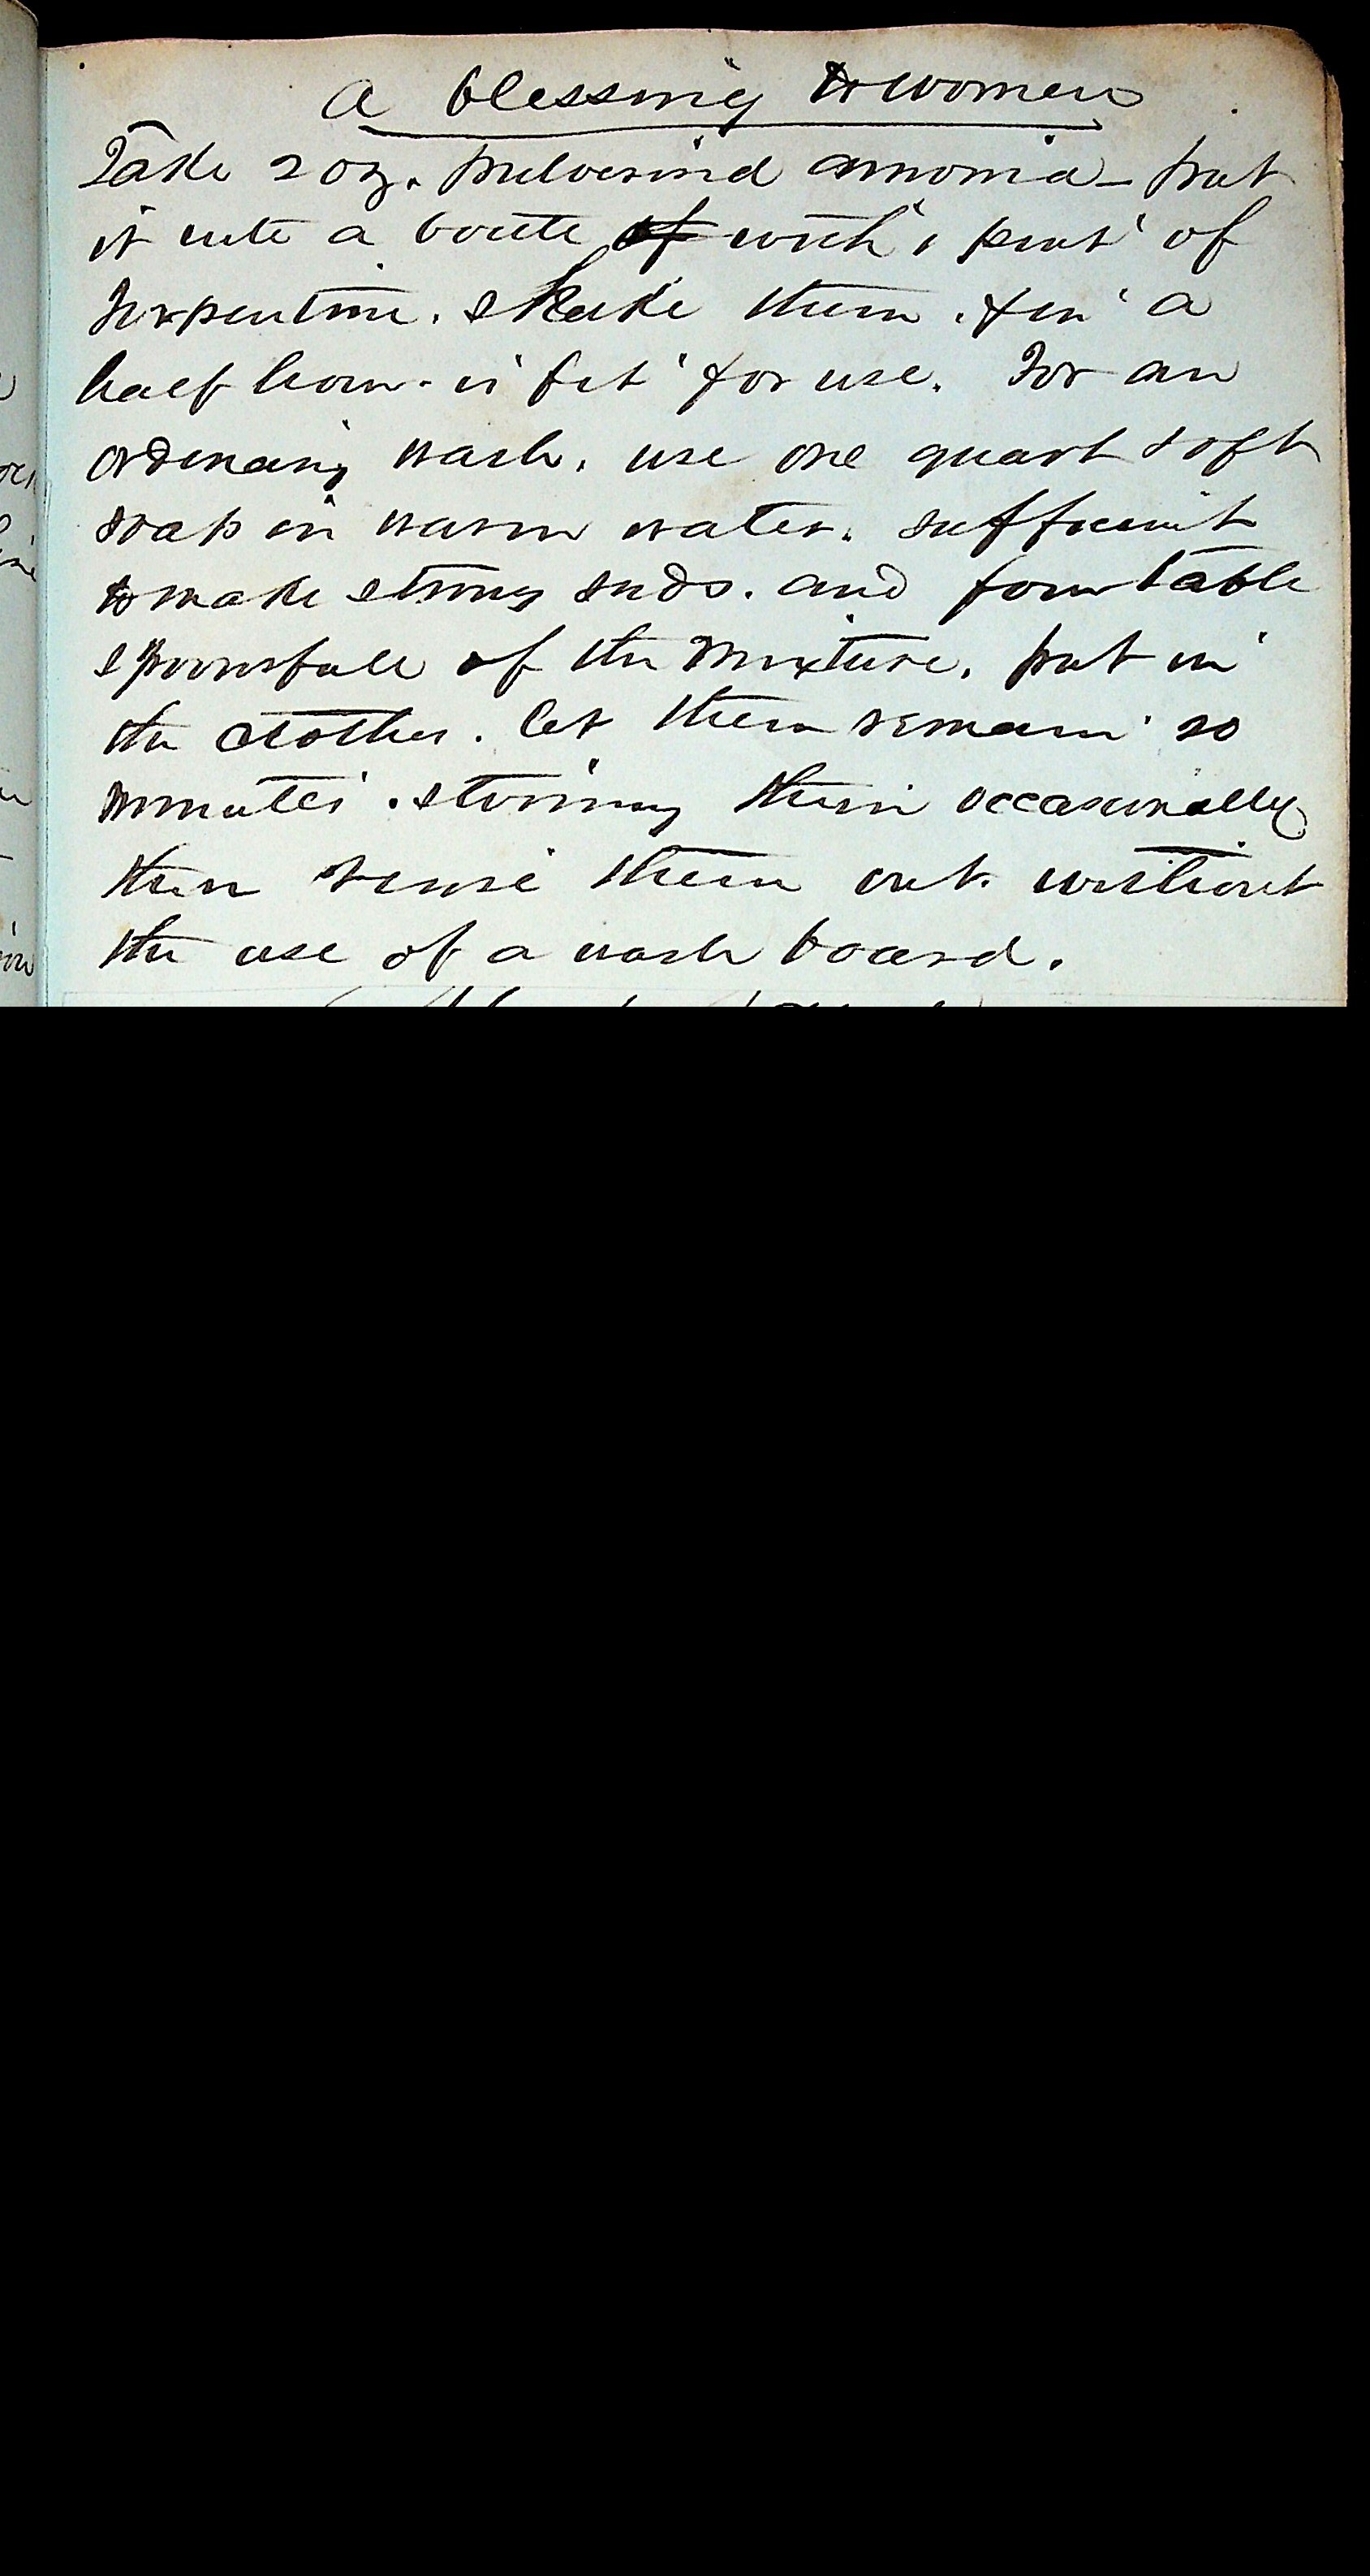 A blessing to women
Take 2 oz. pulverized ammonia - put
it into a bottle of with 1 pint of
turpentine. shake them. & in a
half hour - is fit for use. For an
ordenary wash. use one quart soft
soap in warm water. sufficient
to make strong suds. and four table
spoonsfull of the mixture. put in
the clothes. let them remain 20
minutes. stirring them occasionally
then rense them out. without
the use of a wash board.